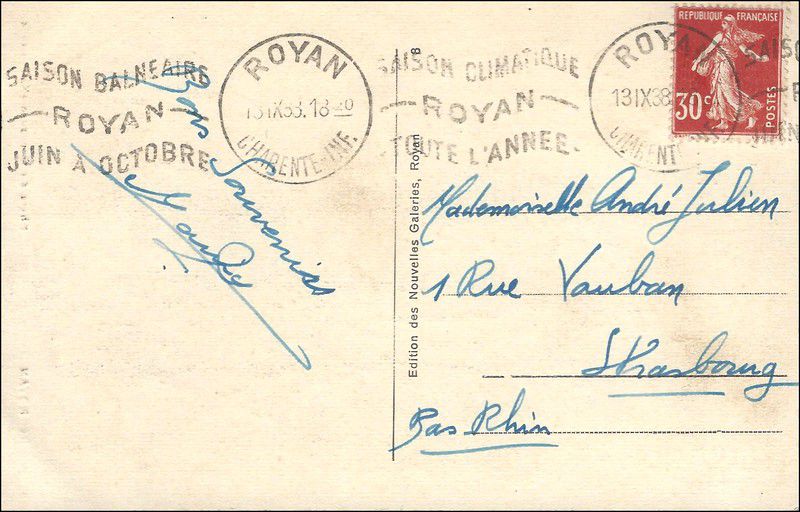 SAISON BALNEAIRE
ROYAN
JUIN A OCTOBRE
ROYAN
13 IX38.18 40
CHARENTE-INF.
SAISON CLIMATIQUE
ROYAN
TOUTE L'ANNEE.
ROYA
13 IX38
CHARENT
REPUBLIQUE FRANÇAISE
30c
POSTES
Bons Souvenirs
Edition des Nouvelles Galeries, Royan
B
Mademoiselle André Julien
1 Rue Vauban
Strasbourg
Bas Rhin